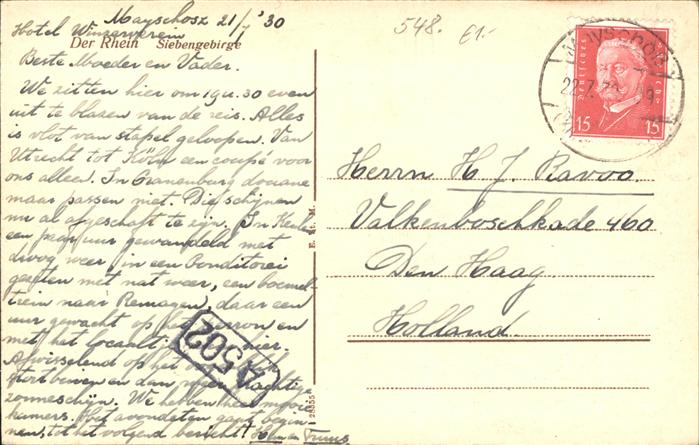 Mayschosz 21/7 '30
Hotel Winzerverein
Der Rhein Siebengebirge
Beste Moeder en Vader.
We zitten hier om 1 gu. 30 even
uit te blazen van de reis. Alles
is vlot van stapel geloopen. Van
Utrecht tot Köln een coupé voor
ons alleen. In Cranenburg douane
maar passen niet. Die schijnen
nu al afgeschaft te zijn. In Keulen
een paar uur gewandeld met
droog weer, in een Conditorei
gezeten met nat weer, een boemel-
trein naar Remagen, daar een
uur gewacht op het perron en
met het locaaltje hier.
Afwisselend op het
stortbuien en dan weer prachtige
zonneschijn. We hebben heel mooie
kamers. Het avondeten gaat begin-
nen, tot het volgend bericht! Han en Truus
548.
£1.-
MAYSCHOSS
22.7.30
Deutsches Reich
15 15
Herrn H. J. Ravoo.
Valkenboschkade 460
Den Haag
Holland.
E. St. M.
28355
A502